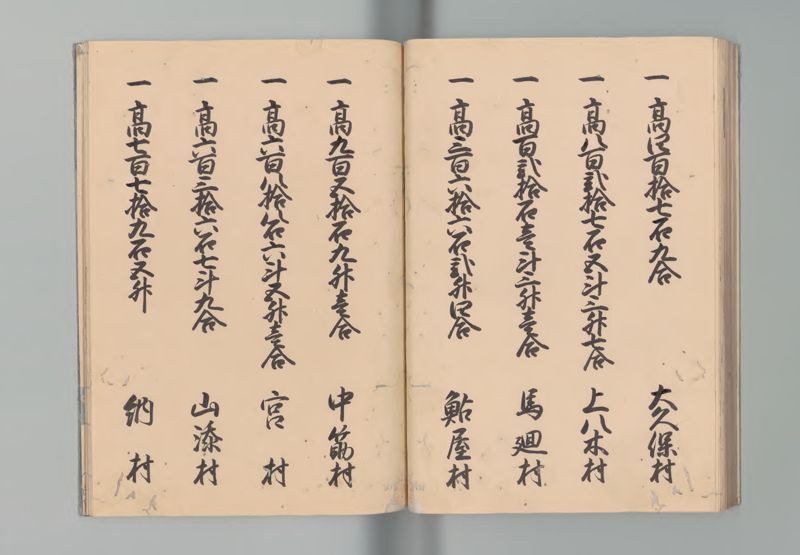 一 高四百拾七石九合 大久保村
一 高八百弐拾七石五斗三升七合 上八木村
一 高百弐拾石壱斗三升壱合 馬廻村
一 高三百六拾六石弐升四合 鮎屋村
一 高九百五拾石九升壱合 中筋村
一 高六百八拾八石六斗五升壱合 宮村
一 高六百三拾六石七斗九合 山添村
一 高七百七拾九石五升 納村